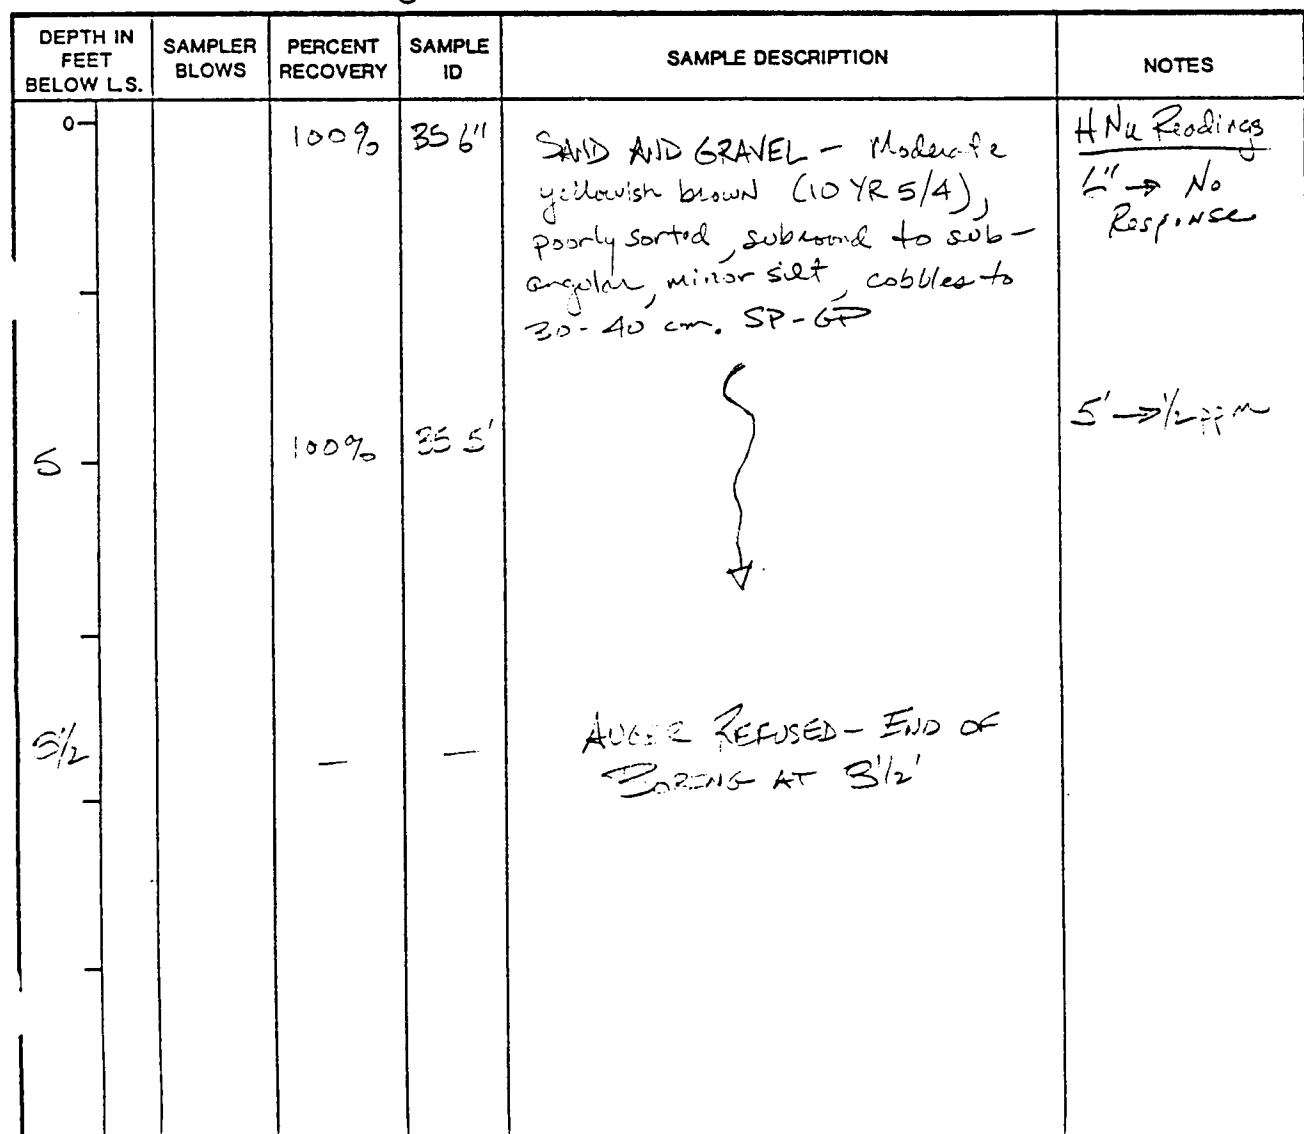 DEPTH IN
FEET
BELOW L.S.
SAMPLER
BLOWS
PERCENT
RECOVERY
SAMPLE
ID
SAMPLE DESCRIPTION
NOTES
0
100%
35 6"
SAND AND GRAVEL - Moderate
yellowish brown (10 YR 5/4),
poorly sorted, subround to sub-
angular, minor silt, cobbles to
30-40 cm. SP-GP
HNu Readings
6" → No
Response
5
100%
35 5'
5' → 1/2 ppm
5 1/2
—
—
AUGER REFUSED - END OF
BORING AT 1/2'